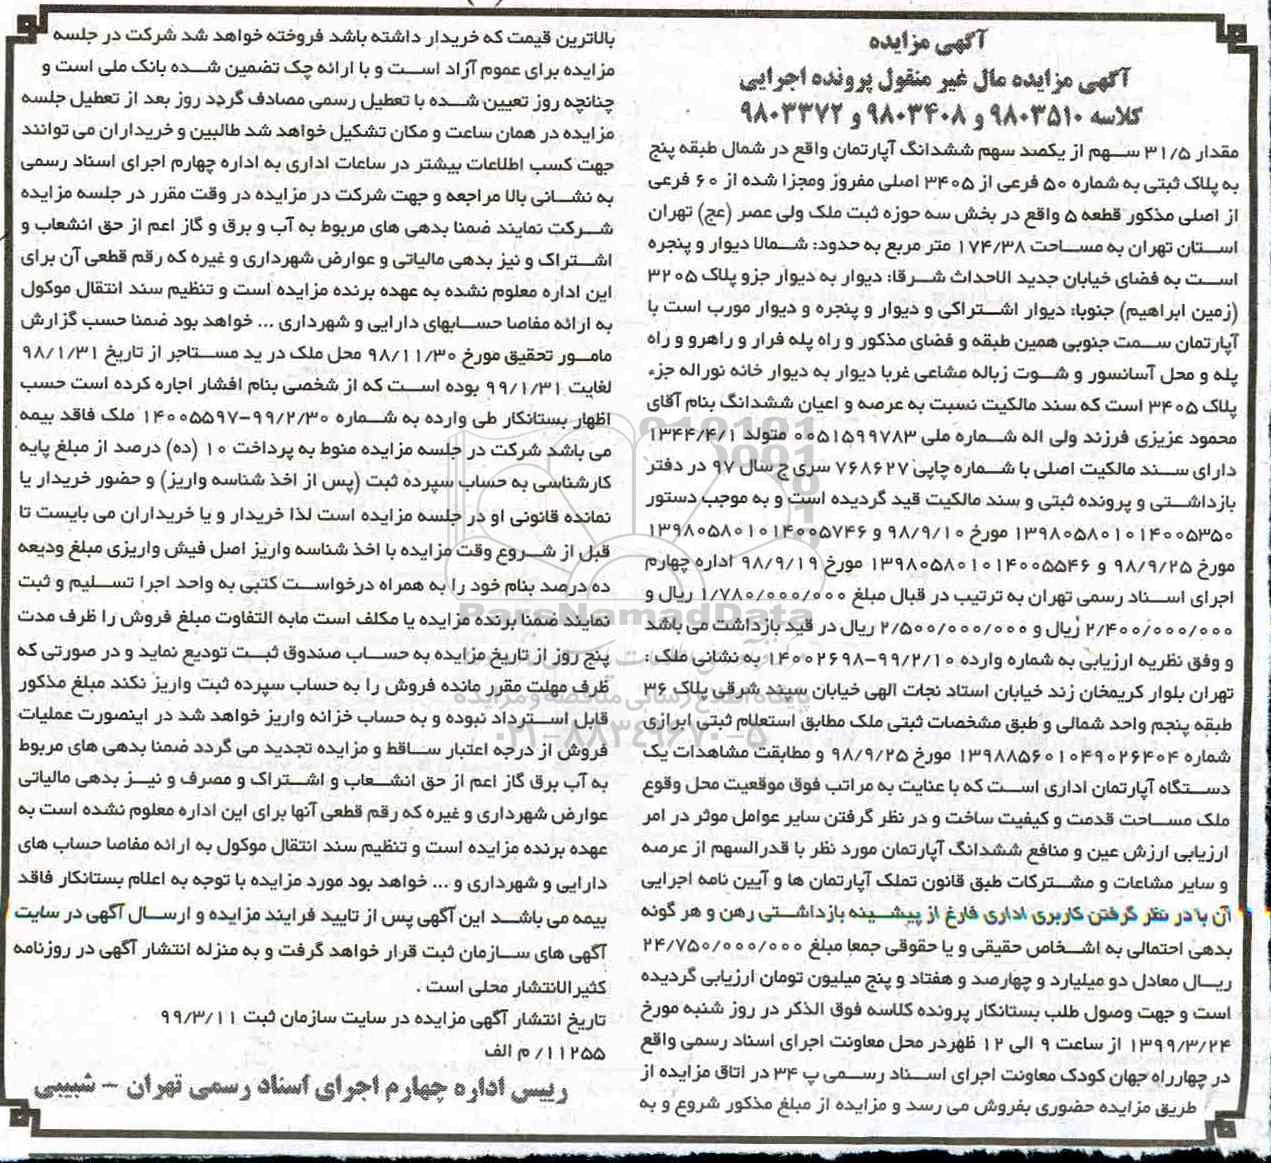 آگهی مزایده
آگهی مزایده مال غیر منقول پرونده اجرایی
کلاسه ۹۸۰۳۵۱۰ و ۹۸۰۳۴۰۸ و ۹۸۰۳۳۷۲
مقدار ۳۱/۵ سهم از یکصد سهم ششدانگ آپارتمان واقع در شمال طبقه پنج
به پلاک ثبتی به شماره ۵۰ فرعی از ۳۴۰۵ اصلی مفروز ومجزا شده از ۶۰ فرعی
از اصلی مذکور قطعه ۵ واقع در بخش سه حوزه ثبت ملک ولی عصر (عج) تهران
استان تهران به مساحت ۱۷۴/۳۸ متر مربع به حدود: شمالا دیوار و پنجره
است به فضای خیابان جدید الاحداث شرقا: دیوار به دیوار جزو پلاک ۳۲۰۵
(زمین ابراهیم) جنوبا: دیوار اشتراکی و دیوار و پنجره و دیوار مورب است با
آپارتمان سمت جنوبی همین طبقه و فضای مذکور و راه پله فرار و راهرو و راه
پله و محل آسانسور و شوت زباله مشاعی غربا دیوار به دیوار خانه نوراله جزء
پلاک ۳۴۰۵ است که سند مالکیت نسبت به عرصه و اعیان ششدانگ بنام آقای
محمود عزیزی فرزند ولی اله شماره ملی ۰۰۵۱۵۹۹۷۸۳ متولد ۱۳۴۴/۴/۱
دارای سند مالکیت اصلی با شماره چاپی ۷۶۸۶۲۷ سری ج سال ۹۷ در دفتر
بازداشتی و پرونده ثبتی و سند مالکیت قید گردیده است و به موجب دستور
۱۳۹۸۰۵۸۰۱۰۱۴۰۰۵۳۵۰ مورخ ۹۸/۹/۱۰ و ۱۳۹۸۰۵۸۰۱۰۱۴۰۰۵۷۴۶
مورخ ۹۸/۹/۲۵ و ۱۳۹۸۰۵۸۰۱۰۱۴۰۰۵۵۴۶ مورخ ۹۸/۹/۱۹ اداره چهارم
اجرای اسناد رسمی تهران به ترتیب در قبال مبلغ ۱/۷۸۰/۰۰۰/۰۰۰ ریال و
۲/۴۰۰/۰۰۰/۰۰۰ ریال و ۲/۵۰۰/۰۰۰/۰۰۰ ریال در قید بازداشت می باشد
و وفق نظریه ارزیابی به شماره وارده ۹۹/۲/۱۰-۱۴۰۰۲۶۹۸ به نشانی ملک :
تهران بلوار کریمخان زند خیابان استاد نجات الهی خیابان سپند شرقی پلاک ۳۶
طبقه پنجم واحد شمالی و طبق مشخصات ثبتی ملک مطابق استعلام ثبتی ابرازی
شماره ۱۳۹۸۸۵۶۰۱۰۴۹۰۲۶۴۰۴ مورخ ۹۸/۹/۲۵ و مطابقت مشاهدات یک
دستگاه آپارتمان اداری است که با عنایت به مراتب فوق موقعیت محل وقوع
ملک مساحت قدمت و کیفیت ساخت و در نظر گرفتن سایر عوامل موثر در امر
ارزیابی ارزش عین و منافع ششدانگ آپارتمان مورد نظر با قدرالسهم از عرصه
و سایر مشاعات و مشترکات طبق قانون تملک آپارتمان ها و آیین نامه اجرایی
آن با در نظر گرفتن کاربری اداری فارغ از پیشینه بازداشتی رهن و هر گونه
بدهی احتمالی به اشخاص حقیقی و یا حقوقی جمعا مبلغ ۲۴/۷۵۰/۰۰۰/۰۰۰
ریال معادل دو میلیارد و چهارصد و هفتاد و پنج میلیون تومان ارزیابی گردیده
است و جهت وصول طلب بستانکار پرونده کلاسه فوق الذکر در روز شنبه مورخ
۱۳۹۹/۳/۲۴ از ساعت ۹ الی ۱۲ ظهردر محل معاونت اجرای اسناد رسمی واقع
در چهارراه جهان کودک معاونت اجرای اسناد رسمی پ ۳۴ در اتاق مزایده از
طریق مزایده حضوری بفروش می رسد و مزایده از مبلغ مذکور شروع و به
بالاترین قیمت که خریدار داشته باشد فروخته خواهد شد شرکت در جلسه
مزایده برای عموم آزاد است و با ارائه چک تضمین شده بانک ملی است و
چنانچه روز تعیین شده با تعطیل رسمی مصادف گردد روز بعد از تعطیل جلسه
مزایده در همان ساعت و مکان تشکیل خواهد شد طالبین و خریداران می توانند
جهت کسب اطلاعات بیشتر در ساعات اداری به اداره چهارم اجرای اسناد رسمی
به نشانی بالا مراجعه و جهت شرکت در مزایده در وقت مقرر در جلسه مزایده
شرکت نمایند ضمنا بدهی های مربوط به آب و برق و گاز اعم از حق انشعاب و
اشتراک و نیز بدهی مالیاتی و عوارض شهرداری و غیره که رقم قطعی آن برای
این اداره معلوم نشده به عهده برنده مزایده است و تنظیم سند انتقال موکول
به ارائه مفاصا حسابهای دارایی و شهرداری ... خواهد بود ضمنا حسب گزارش
مامور تحقیق مورخ ۹۸/۱۱/۳۰ محل ملک در ید مستاجر از تاریخ ۹۸/۱/۳۱
لغایت ۹۹/۱/۳۱ بوده است که از شخصی بنام افشار اجاره کرده است حسب
اظهار بستانکار طی وارده به شماره ۹۹/۲/۳۰-۱۴۰۰۵۵۹۷ ملک فاقد بیمه
می باشد شرکت در جلسه مزایده منوط به پرداخت ۱۰ (ده) درصد از مبلغ پایه
کارشناسی به حساب سپرده ثبت (پس از اخذ شناسه واریز) و حضور خریدار یا
نماینده قانونی او در جلسه مزایده است لذا خریدار و یا خریداران می بایست تا
قبل از شروع وقت مزایده با اخذ شناسه واریز اصل فیش واریزی مبلغ ودیعه
ده درصد بنام خود را به همراه درخواست کتبی به واحد اجرا تسلیم و ثبت
نمایند ضمنا برنده مزایده یا مکلف است مابه التفاوت مبلغ فروش را ظرف مدت
پنج روز از تاریخ مزایده به حساب صندوق ثبت تودیع نماید و در صورتی که
ظرف مهلت مقرر مانده فروش را به حساب سپرده ثبت واریز نکند مبلغ مذکور
قابل استرداد نبوده و به حساب خزانه واریز خواهد شد در اینصورت عملیات
فروش از درجه اعتبار ساقط و مزایده تجدید می گردد ضمنا بدهی های مربوط
به آب برق گاز اعم از حق انشعاب و اشتراک و مصرف و نیز بدهی مالیاتی
عوارض شهرداری و غیره که رقم قطعی آنها برای این اداره معلوم نشده است به
عهده برنده مزایده است و تنظیم سند انتقال موکول به ارائه مفاصا حساب های
دارایی و شهرداری و ... خواهد بود مورد مزایده با توجه به اعلام بستانکار فاقد
بیمه می باشد این آگهی پس از تایید فرایند مزایده و ارسال آگهی در سایت
آگهی های سازمان ثبت قرار خواهد گرفت و به منزله انتشار آگهی در روزنامه
کثیرالانتشار محلی است .
تاریخ انتشار آگهی مزایده در سایت سازمان ثبت ۹۹/۳/۱۱
۱۱۲۵۵/ م الف
رییس اداره چهارم اجرای اسناد رسمی تهران - شبیبی
ParsNamadData
پایگاه اطلاع رسانی مناقصه و مزایده
۰۲۱-۸۸۳۴۹۶۷۰-۵